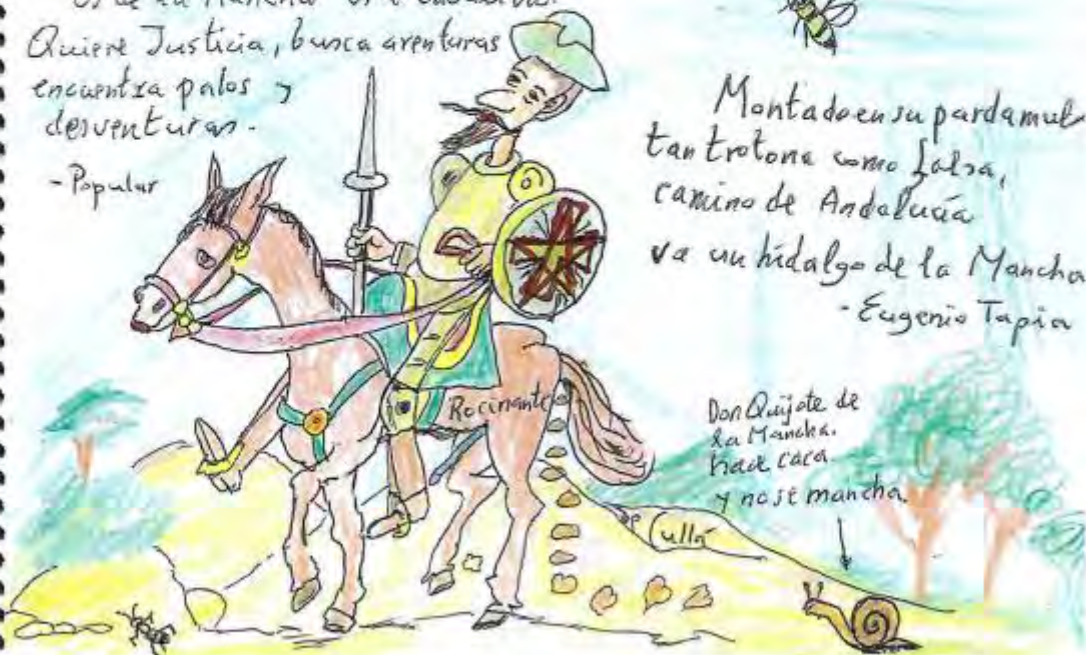 es de la Mancha
Quiere Justicia, busca aventuras
encuentra palos y
desventuras.
-Popular
Montado en su parda mul
tan trotona como falsa,
camino de Andalucía
va un hidalgo de la Mancha
-Eugenio Tapia
Rocinante
Don Quijote de
la Mancha.
hace caca
y no se mancha.
ullá